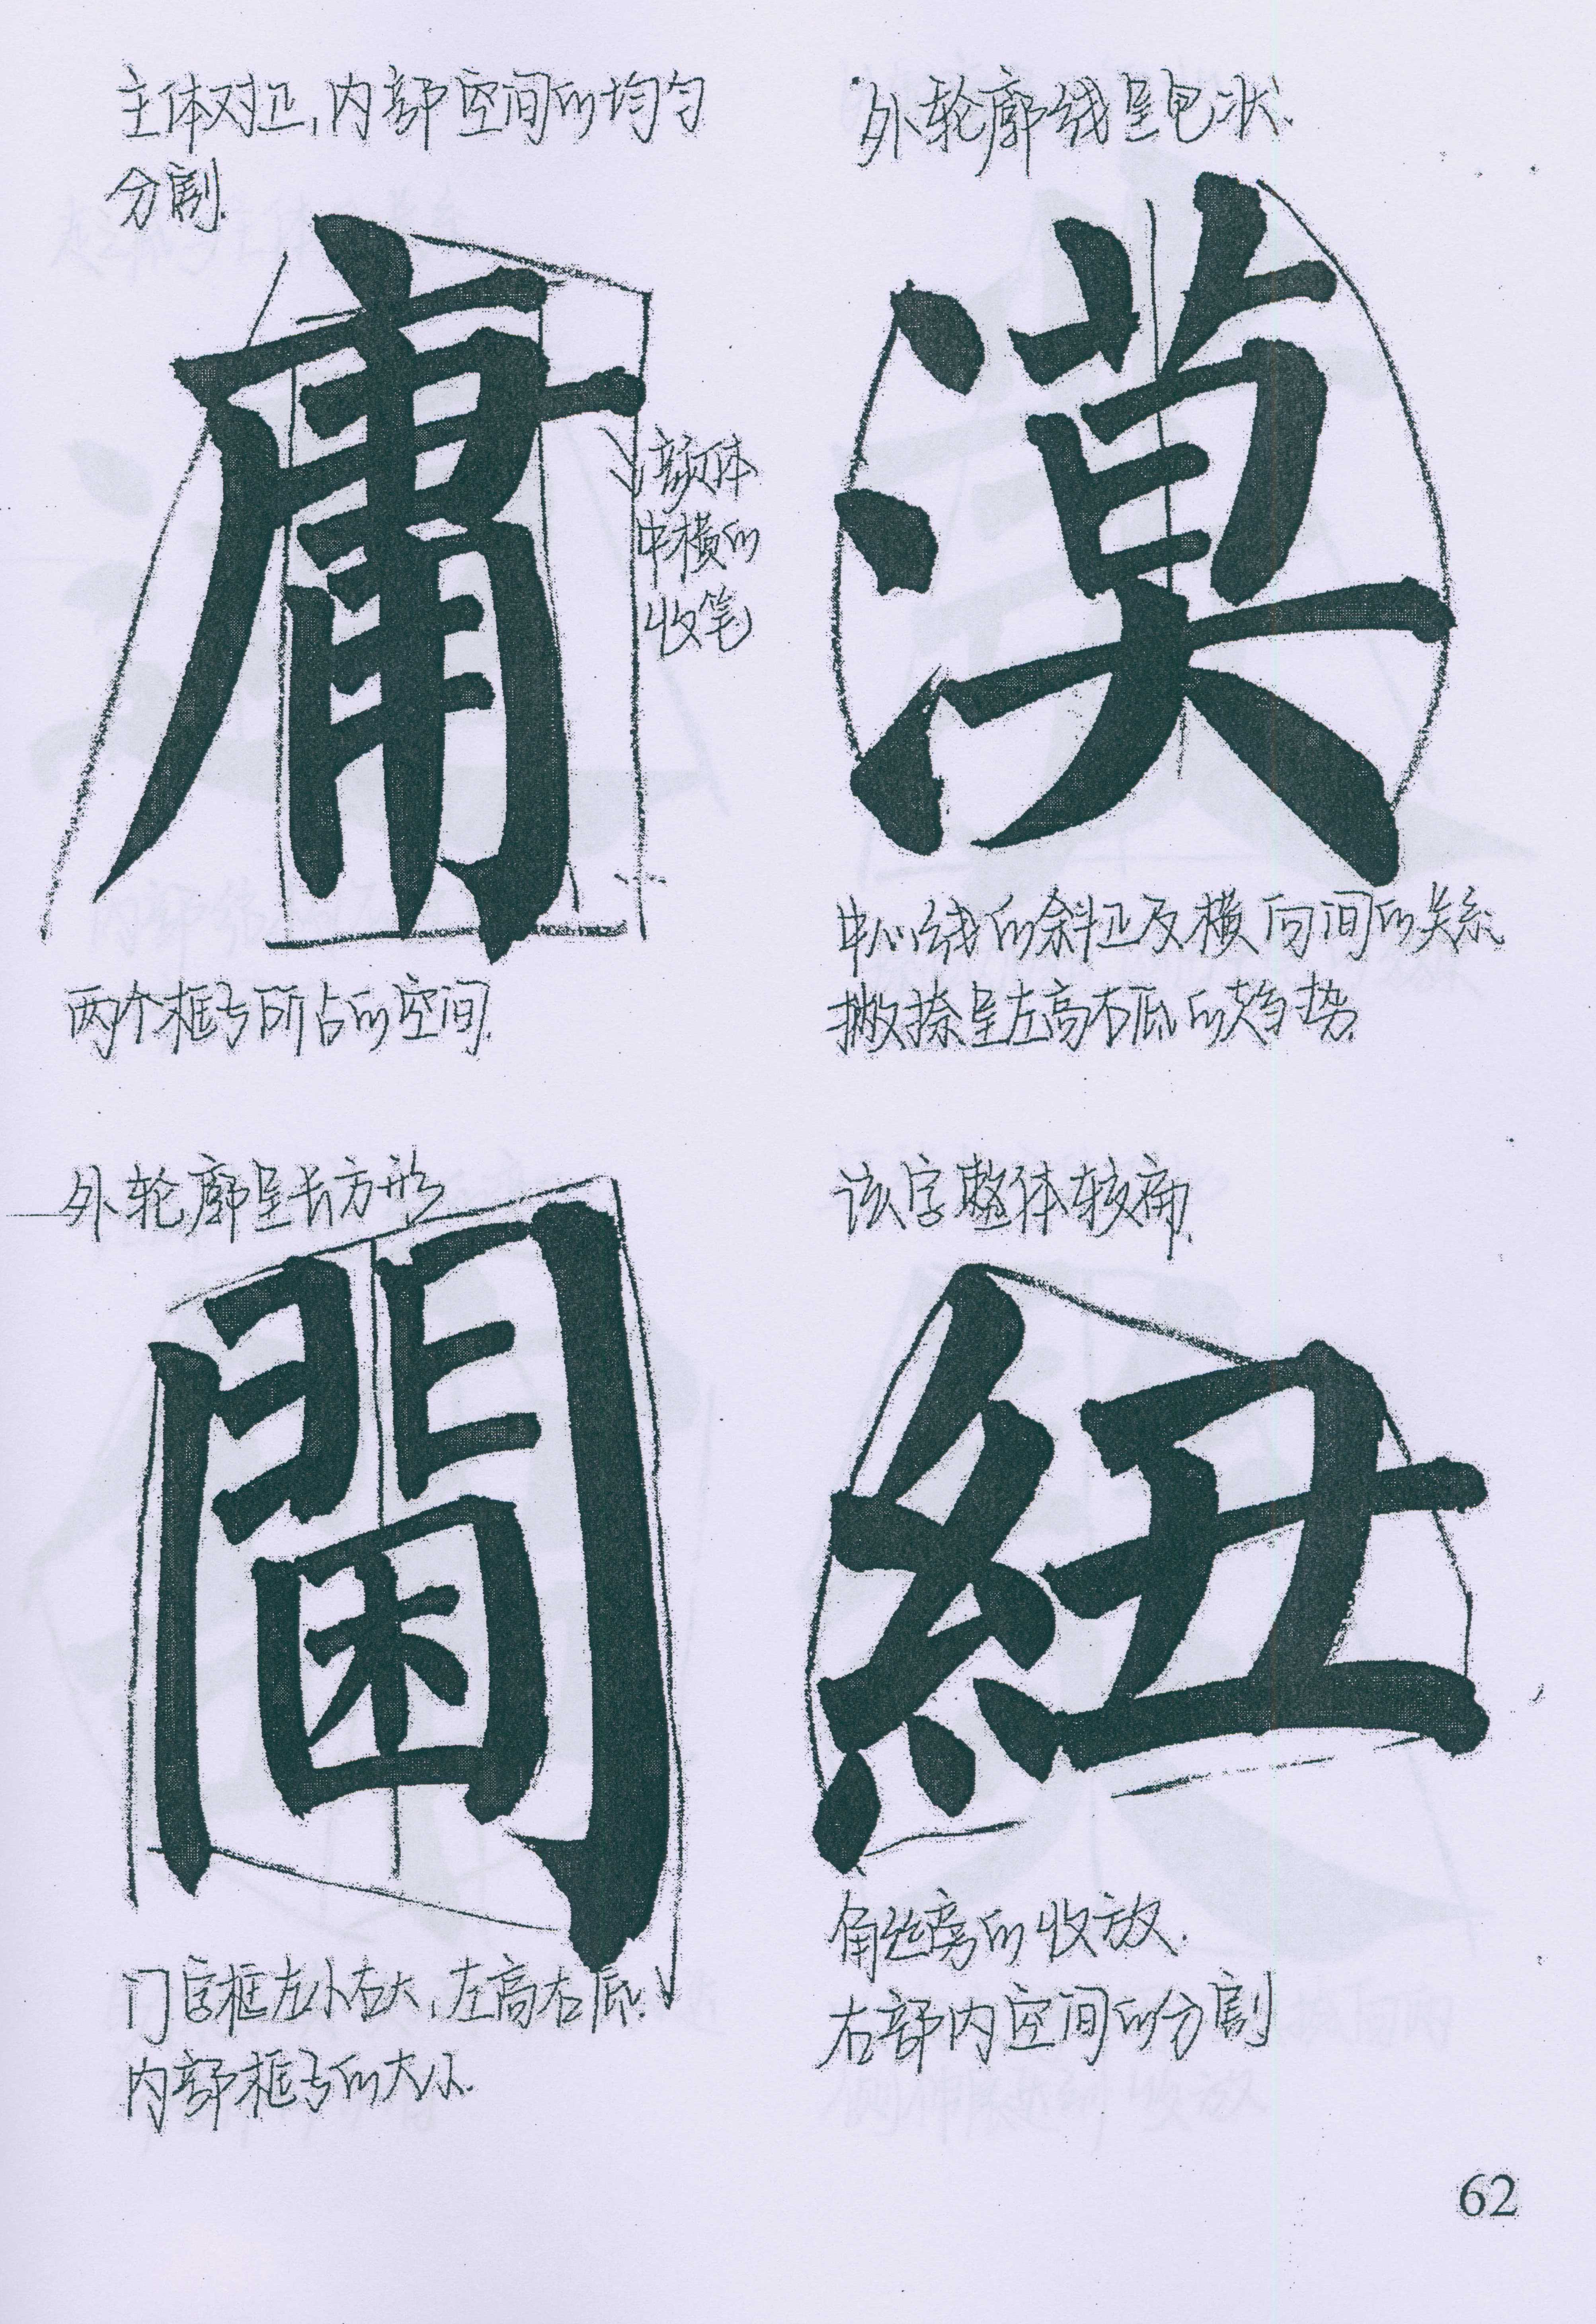 主体对正,内部空间的均匀
分割.
庸
颜体
中横的
收笔
两个框号所占的空间.
外轮廓线呈龟状.
漠
中心线的斜正及横向间的关系
撇捺呈左高右底的趋势.
外轮廓呈长方形
閫
门字框左小右大,左高右底.
内部框号的大小.
该字整体较扁.
紐
角丝旁的收放.
右部内空间的分割
62